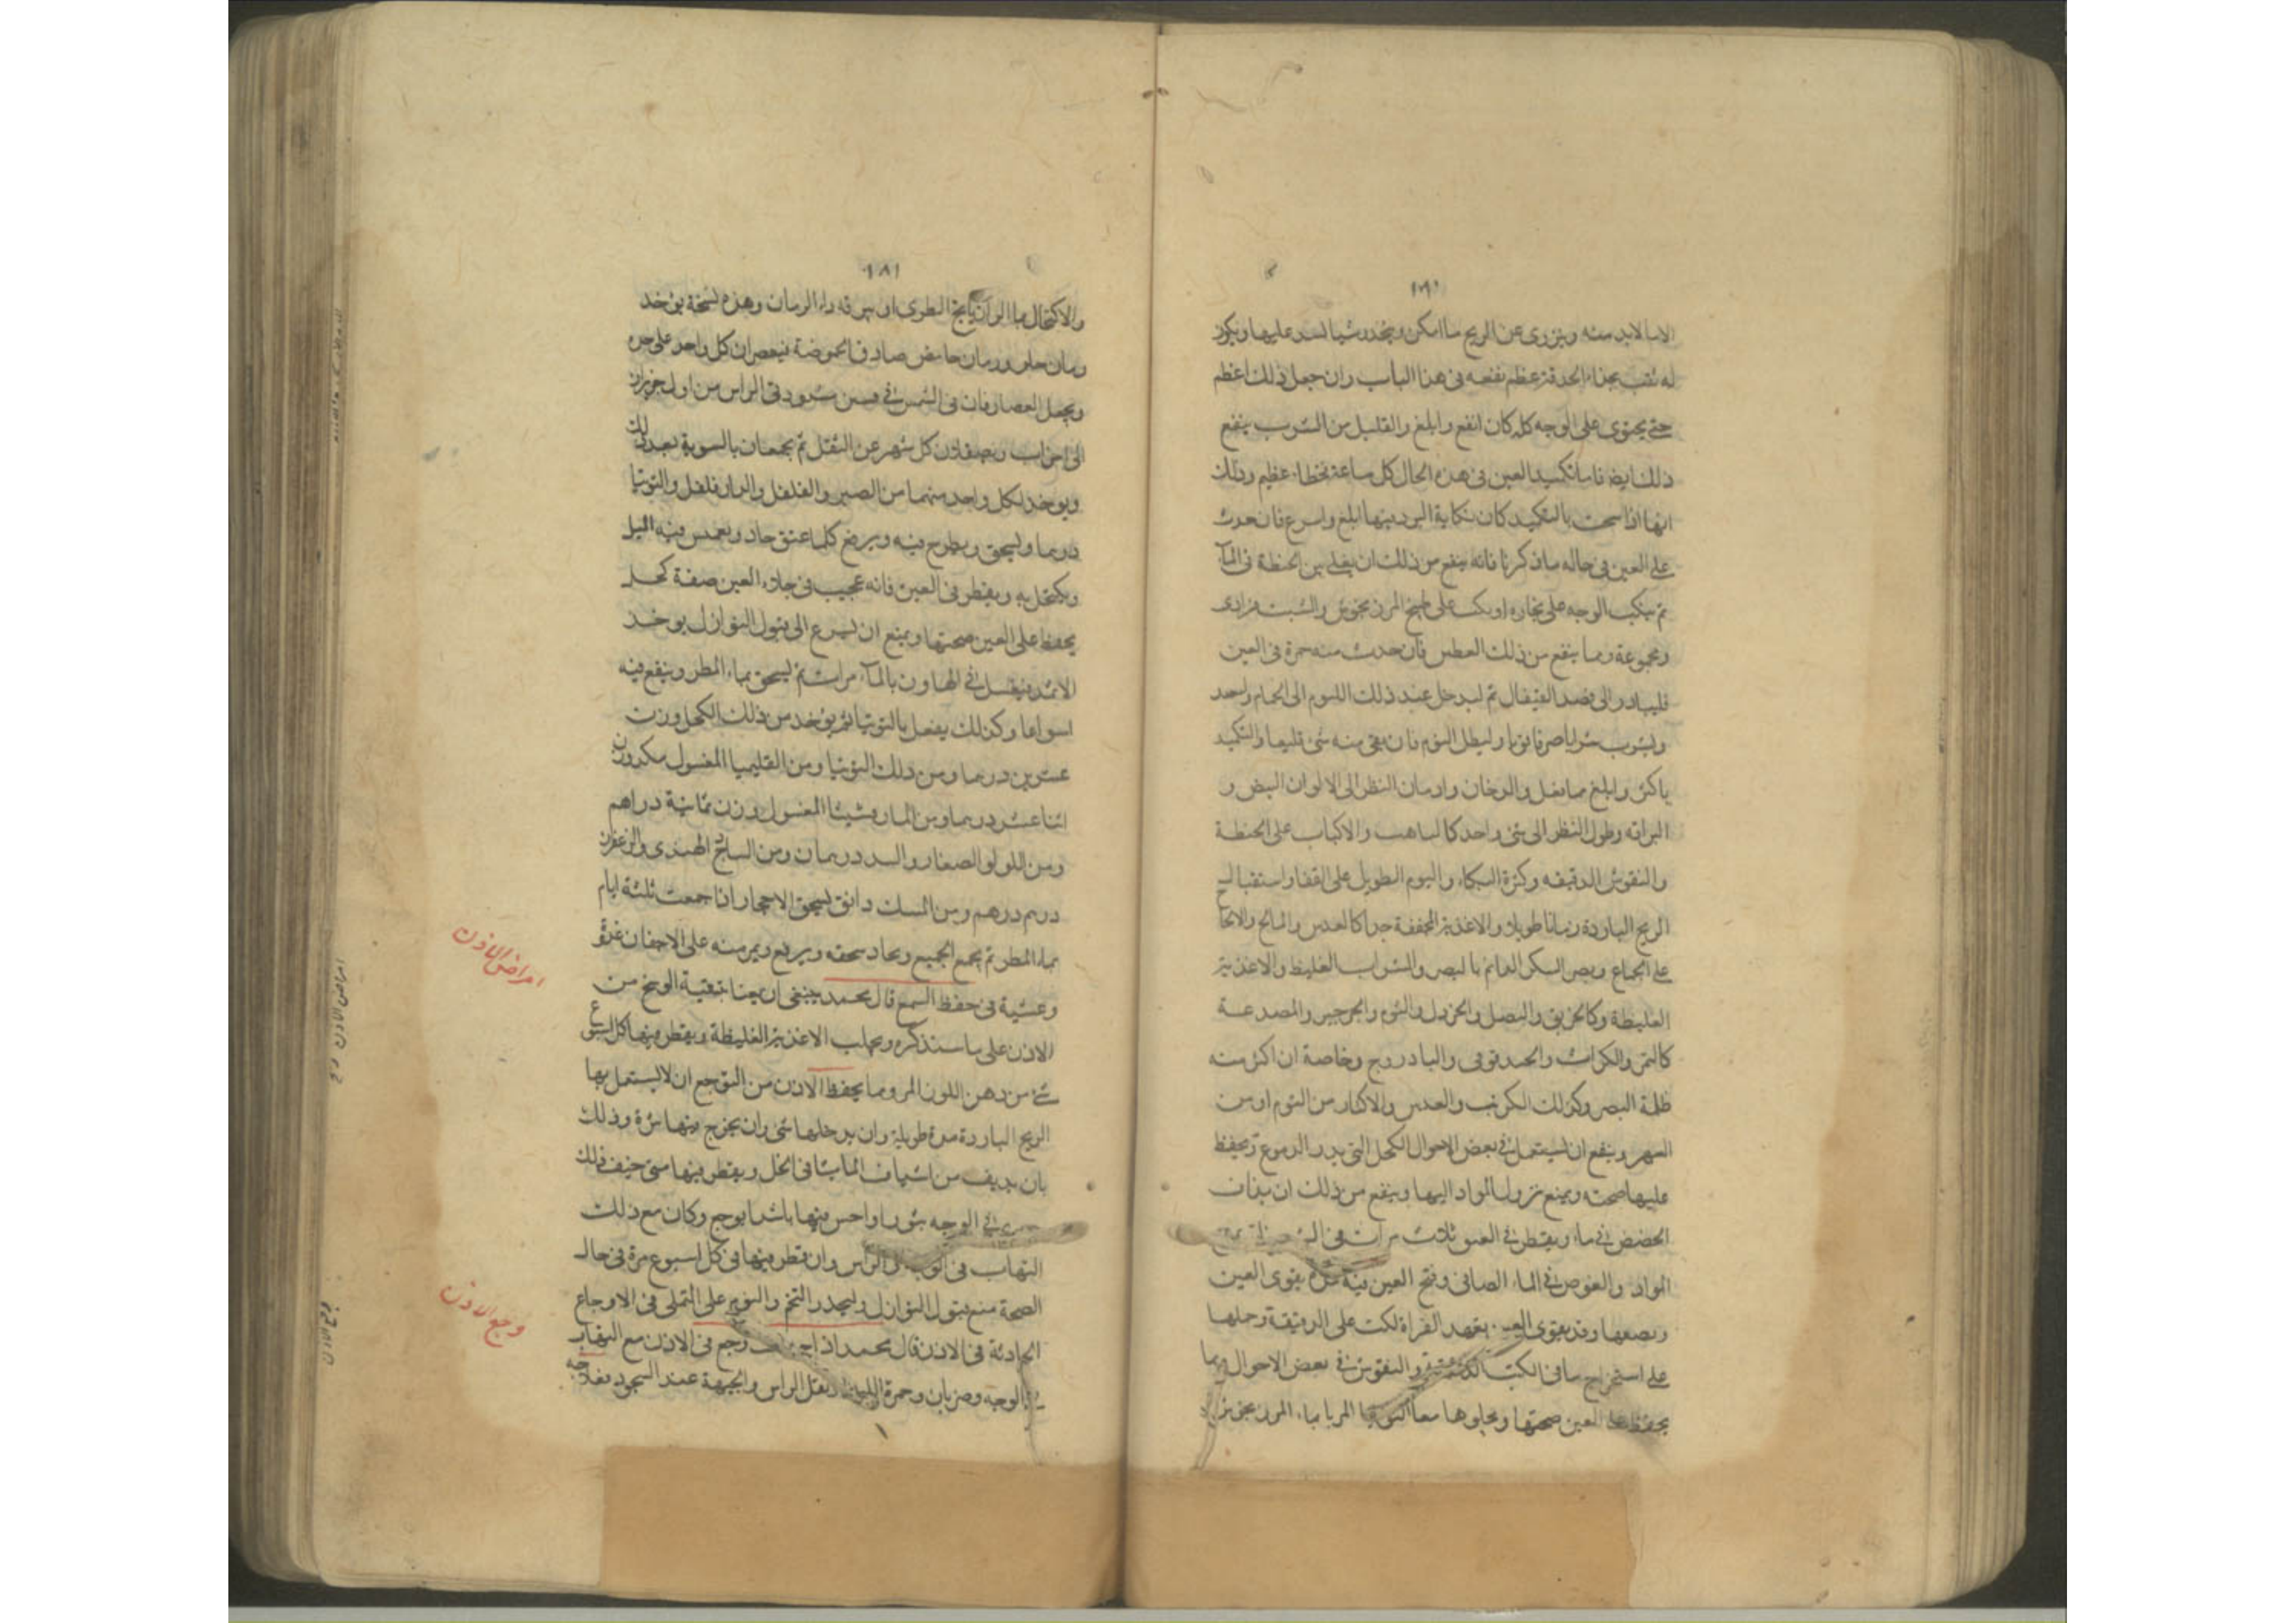 الا ما لا بد منه ويتزوى عن الريح ما امكن ويتخذ شيا لسد عليها ويكون
له ثقب بحذاء الحدقة عظم نفعه فى هذا الباب وان جعل ذلك اعظم
حتى يحتوى على الوجه كله كان انفع وابلغ والقليل من الشرب ينفع
ذلك ايضا فاما تكميد العين فى هذه الحال كل ساعة فخطاء عظيم وذلك
انها اذا سخنت بالتكميد كان نكاية البرد فيها ابلغ واسرع فان حدث
على العين فى حاله ما ذكرنا فانه ينفع من ذلك ان يغلى تبن الحنطة فى المآء
ثم ينكب الوجه على بخاره او يكب على طبيخ المرزنجوش والشبت فرادى
ومجموعة ومما ينفع من ذلك العطس فان حدث منه حمرة فى العين
فليبادر الى فصد القيفال ثم ليدخل عند ذلك النوم الى الحمام
وليشرب شرابا صرفا قويا وليطل النوم فان بقى منه شئ
ابلغ مما يفعل والدخان وادمان النظر الى الالوان البيض و
البراقه وطول النظر الى شئ واحد كالباهت والاكباب على الحنطة
والنقوش الدقيقه وكثرة البكاء والنوم الطويل على القفا واستقبال
الريح الباردة زمانا طويلا والاغذية المجففة جدا كالعدس والمالح والالحاح
على الجماع ويضر السكر الدائم بالبصر والشراب الغليظ والاغذية
الغليظة وكالحريق والبصل والخردل والثوم والجرجير والمصدعة
كالتمر والكراث والحندقوقى والبادروج وخاصة ان اكثر منه
ظلمة البصر وكذلك الكرنب والعدس والاكثار من النوم او من
السهر وينفع ان يستعمل فى بعض الاحوال الكحل التى يدر الدموع ويحفظ
عليها صحته ويمنع نزول المواد اليها وينفع من ذلك ان يذاف
الحضض فى ماء ويقطر فى العين ثلاث مرات فى
المواد والغوص فى الماء الصافى وفتح العين فيه مدة يقوى العين
ويصفيها وقد يقوى العين تعهد القراة لكن على الرقيقة وحلها
على استخراج ما فى الكتب الدقيقة والنقوش فى بعض الاحوال ومما
يحفظ على العين صحتها ويجلوها معا التوتيا المربا بماء المرزنجوش
١٨١
والاكتحال بماء الرازيانج الطرى او ببرقه ماء الرمان وهذه نسخة يؤخذ
رمان حلو ورمان حامض صادق الحموضة فيعصران كل واحد على حده
ويجعل العصارتان فى الشمس فى مسن مسدود فى الراس من اول حزيران
الى اخر اب ويصفان كل شهر عن الثقل ثم يجمعان بالسوية بعد ذلك
ويوخذ لكل واحد منهما من الصبر والفلفل والدارفلفل والتوتيا
درهما ويسحق ويطرح فيه ويرفع كلما عتق جاد ويغمس فيه الميل
ويكتحل به ويقطر فى العين فانه عجيب فى جلاء العين صفة كحل
يحفظ على العين صحتها ويمنع ان يسرع الى قبول النوازل يوخذ
الاثمد فيغسل فى الهاون بالمآء مرات ثم يسحق بماء المطر وينقع فيه
اسبوعا وكذلك يفعل بالتوتيا ثم يؤخذ من ذلك الكحل وزن
عشرين درهما ومن ذلك التوتيا ومن القليميا المغسول مكدوزن
اثنا عشر درهما ومن المارقشيثا المغسول وزن ثمانية دراهم
ومن اللولو الصغار والبسد درهمان ومن الساذج الهندى والزعفران
درهم درهم ومن المسك دانق يسحق الاحجار اذا جمعت ثلثة ايام
بماء المطر ثم يجمع الجميع ويعاد سحقه ويرفع ويمر منه على الاجفان غدوة
وعشية فى حفظ السمع قال محمد ينبغى ان يعنا بتنقية الوسخ من
الاذن على ما سنذكره ويجانب الاغذية الغليظة ويقطر فيها كل اسبوع
شئ من دهن اللوز المر ومما يحفظ الاذن من التوجع ان لا يستقبل بها
الريح الباردة مدة طويلة وان يدخلها شئ وان يخرج فيها بثرة وذلك
بان يديف من اشياف الماميثا فى الخل ويقطر فيها متى خيف ذلك
فى الوجه بثورا واحس فيها بابتداء وجع وكان مع ذلك
التهاب فى الوجه والراس وان قطر فيها فى كل اسبوع مرة فى حال
الصحة منع قبول النوازل وليحذر التخم والنوم على التملى فى الاوجاع
الحادثة فى الاذن قال محمد اذا حدث وجع فى الاذن مع التهاب
فى الوجه وضربان وحمرة اللون وثقل الراس والجبهة عند السجود فعلاجه
امراض الاذن
وجع الاذن